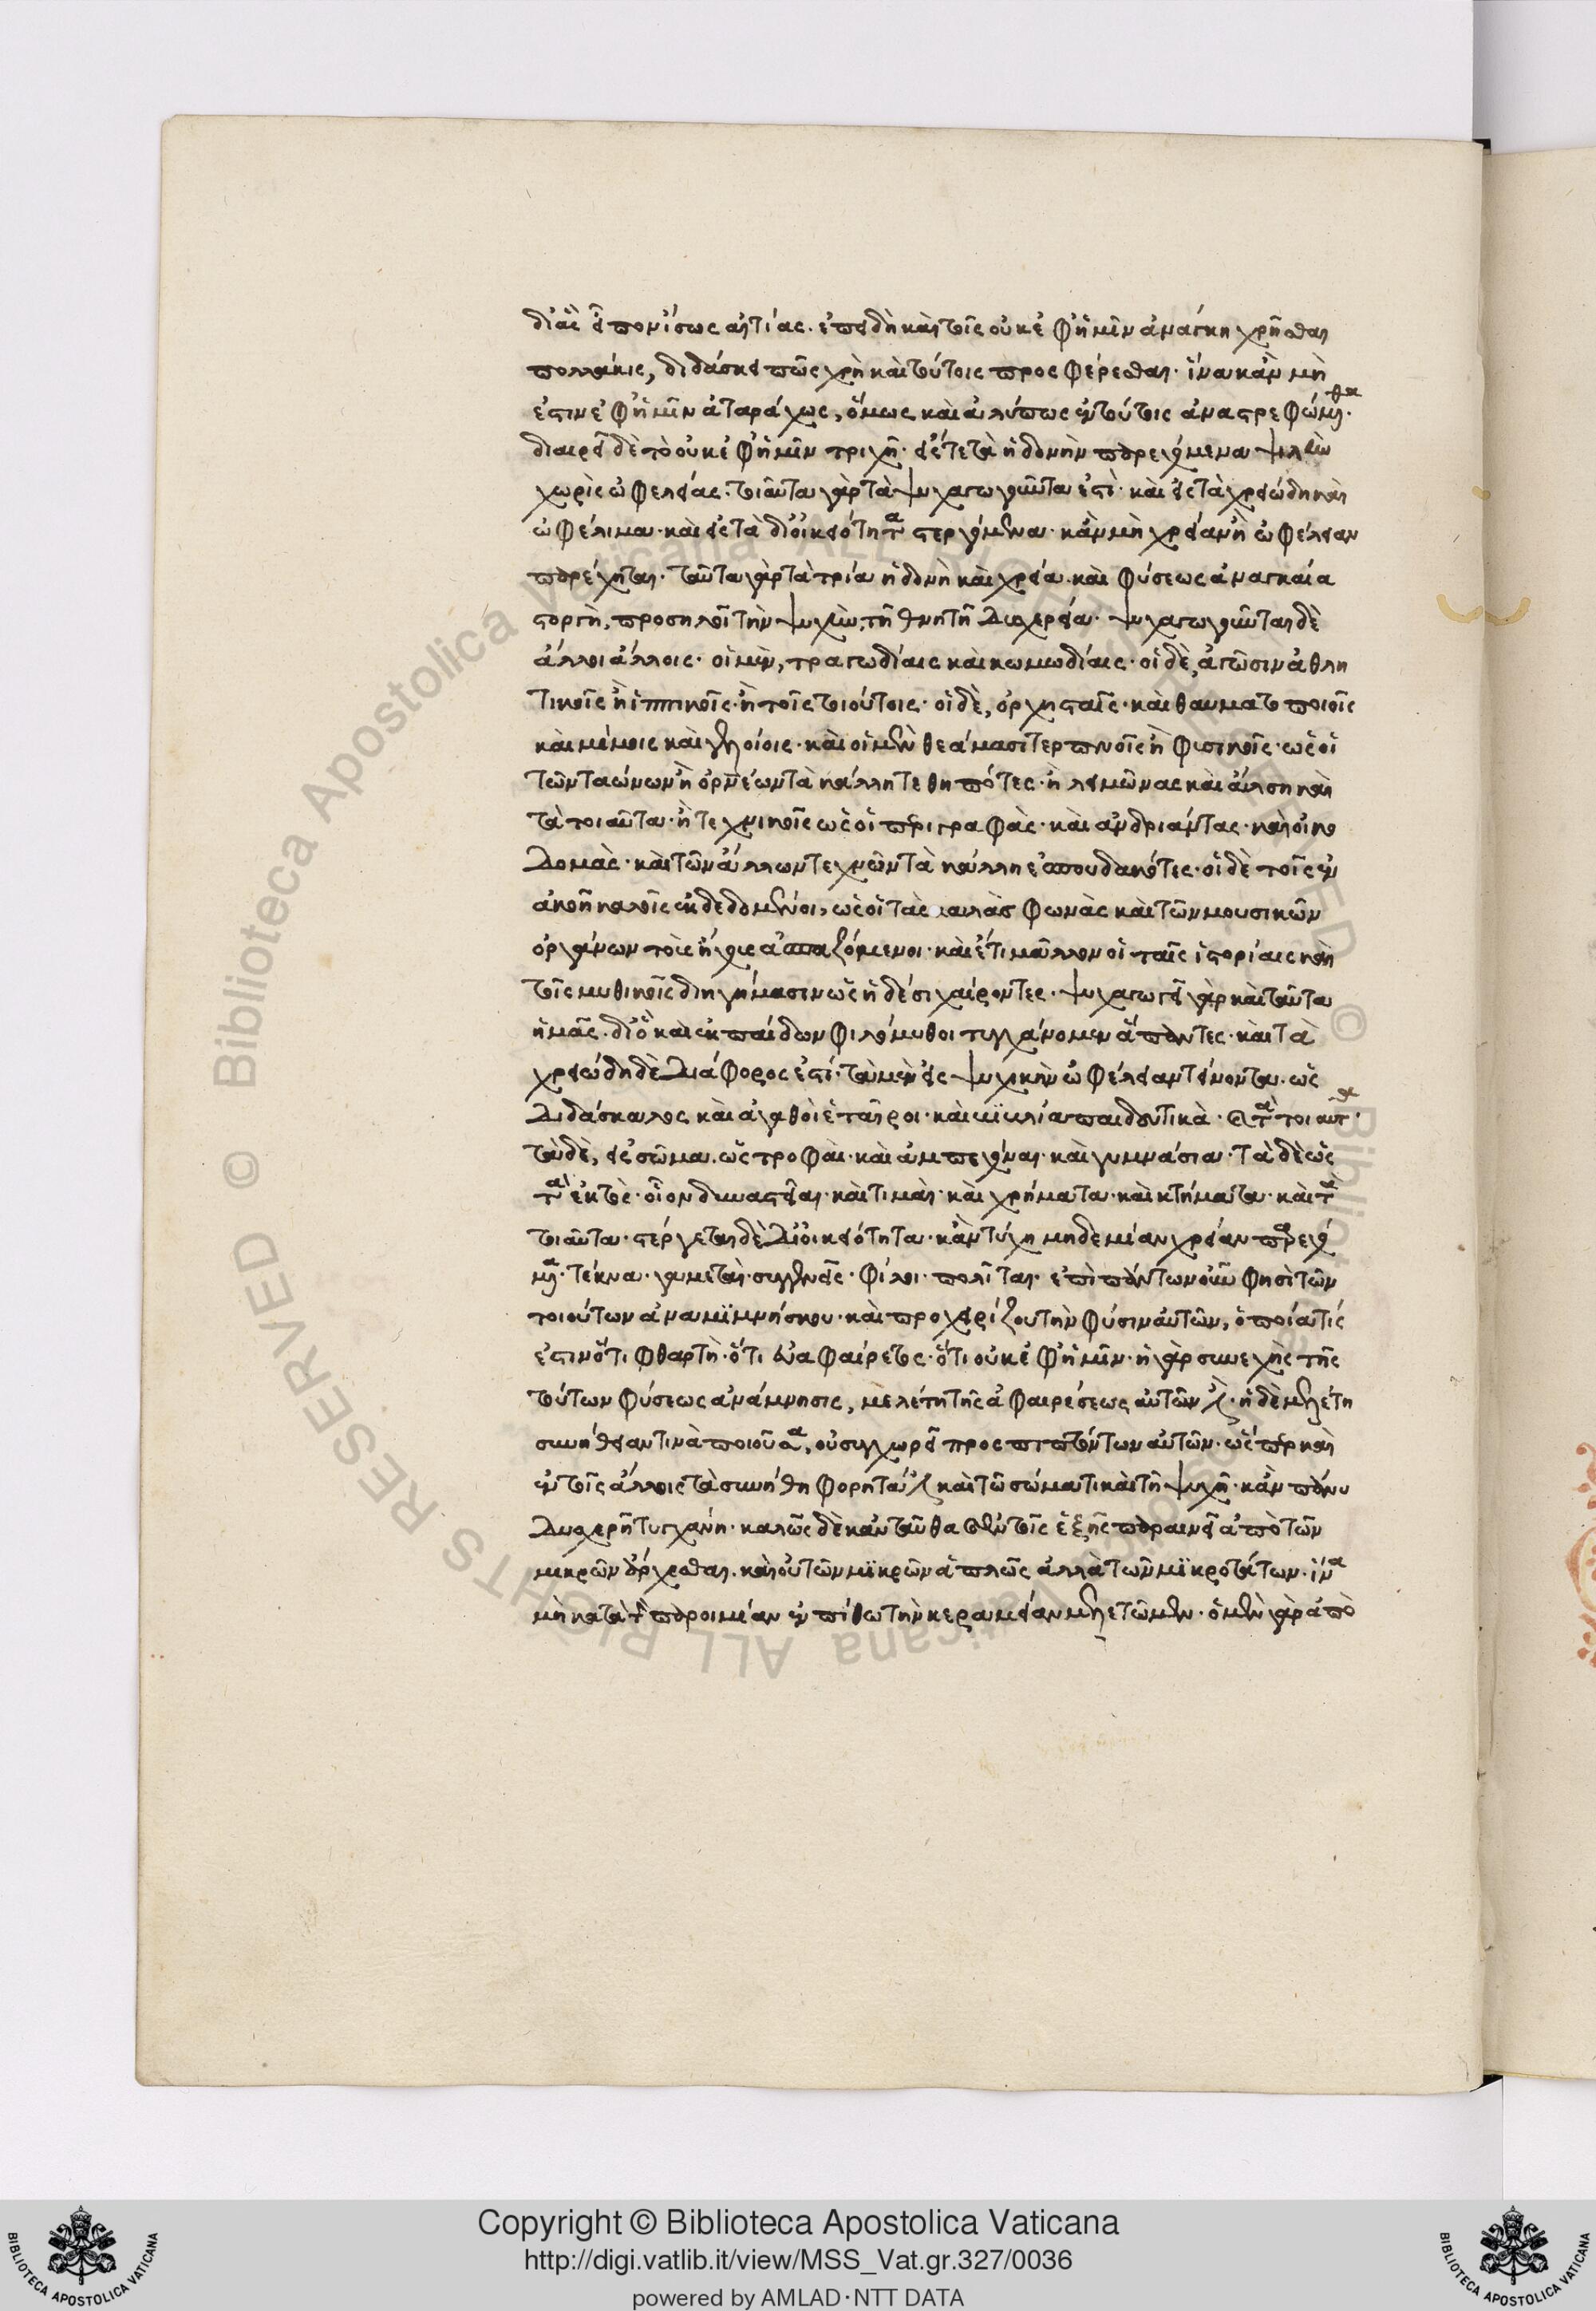 διὰς εἶπον ἴσως αἰτίας. ἐπειδὴ καὶ τοῖς οὐκ ἐφ' ἡμῖν ἀνάγκη χρῆσθαι
πολλάκις, διδάσκει πῶς χρὴ καὶ τούτοις προσφέρεσθαι. ἵνα κἂν μὴ
ἔστιν ἐφ' ἡμῖν ἀταράχως, ὅμως καὶ ἀλύπως ἐν τούτοις ἀναστρεφώμεθα.
διαιρεῖ δὲ τὸ οὐκ ἐφ' ἡμῖν τριχῆ. εἴς τε τὰ ἡδονὴν παρεχόμενα ψιλὴν
χωρὶς ὠφελείας. τοιαῦτα γὰρ τὰ ψυχαγωγοῦντα ἐστί. καὶ εἰς τὰ χρειώδη καὶ
ὠφέλιμα. καὶ εἰς τὰ δι' οἰκειότητα στεργόμενα. κἂν μὴ χρείαν ἢ ὠφέλειαν
παρέχηται. ταῦτα γὰρ τὰ τρία ἡδονὴ καὶ χρεία. καὶ φύσεως ἀναγκαία
στοργὴ, προσηλοῖ τὴν ψυχὴν τῇ θνητῇ δυσχερεία. ψυχαγωγοῦνται δὲ
ἄλλοι ἄλλοις. οἱ μὲν, τραγωδίαις καὶ κωμωδίαις. οἱ δὲ, ἀγῶσιν ἀθλη
τικοῖς ἢ ἱππικοῖς. ἢ τοῖς τοιούτοις. οἱ δὲ, ὀρχησταῖς. καὶ θαυματοποιοῖς
καὶ μίμοις καὶ γελοίοις. καὶ οἱ μὲν θεάμασι τερπνοῖς ἢ φυσικοῖς. ὡς οἱ
τῶν ταώνων ἢ ὀρνέων τὰ κάλλη τεθηπότες. ἢ λειμῶνας καὶ ἄλση καὶ
τὰ τοιαῦτα. ἢ τεχνικοῖς ὡς οἱ περὶ γραφὰς. καὶ ἀνδριάντας. καὶ οἰκο
δομὰς. καὶ τῶν ἄλλων τεχνῶν τὰ κάλλη ἐσπουδακότες. οἱ δὲ τοῖς ἐν
ἀκοῇ καλοῖς ἐκδεδομένοι, ὡς οἱ τὰς καλὰς φωνὰς καὶ τῶν μουσικῶν
ὀργάνων τοὺς ἤχους ἀσπαζόμενοι. καὶ ἔτι μᾶλλον οἱ ταῖς ἱστορίαις καὶ
τοῖς μυθικοῖς διηγήμασιν ὡς ἡδέσι χαίροντες. ψυχαγωγεῖ γὰρ καὶ ταῦτα
ἡμᾶς. διὸ καὶ ἐκ παίδων φιλόμυθοι τυγχάνομεν ἅπαντες. καὶ τὰ
χρειώδη δὲ διάφορος ἐστί. τὰ μὲν εἰς ψυχικὴν ὠφέλειαν τείνοντα. ὡς
διδάσκαλος καὶ ἀγαθοὶ ἑταῖροι. καὶ βιβλία παιδευτικὰ. καὶ τὰ τοιαῦτα.
τὰ δὲ, εἰς σῶμα. ὡς τροφαὶ. καὶ ἀμπεχόναι. καὶ γυμνάσια. τὰ δὲ ὡς
τὰ ἐκτὸς. οἷον δυναστεῖαι. καὶ τιμαὶ. καὶ χρήματα. καὶ κτήματα. καὶ τὰ
τοιαῦτα. στέργεται δὲ δι' οἰκειότητα. κἂν τύχη μηδεμίαν χρείαν παρεχό
μενα. τέκνα. γαμεταὶ. συγγενεῖς. φίλοι. πολῖται. ἐπὶ πάντων οὖν φησὶ τῶν
τοιούτων ἀναμιμνήσκου. καὶ προχειρίζου τὴν φύσιν αὐτῶν, ὁποία τίς
ἐστιν ὅτι φθαρτὴ. ὅτι εὐαφαίρετος. ὅτι οὐκ ἐφ' ἡμῖν. ἡ γὰρ συνεχὴς τῆς
τούτων φύσεως ἀνάμνησις, μελέτη τῆς ἀφαιρέσεως αὐτῶν ἐστι. ἡ δὲ μελέτη
συνήθειαν τινὰ ποιοῦσα, οὐ συγχωρεῖ προσπιπτόντων αὐτῶν. ὥσπερ καὶ
ἐν τοῖς ἄλλοις τὰ συνήθη φορητά ἐστι καὶ τῶ σώματι καὶ τῇ ψυχῇ. κἂν πάνυ
δυσχερῆ τυγχάνη. καλῶς δὲ κἀνταῦθα κἀν τοῖς ἑξῆς παραινεῖ ἀπὸ τῶν
μικρῶν ἄρχεσθαι. καὶ οὐ τῶν μικρῶν ἁπλῶς ἀλλὰ τῶν μικροτάτων. ἵνα
μὴ κατὰ τὴν παροιμίαν ἐν πίθω τὴν κεραμείαν μελετῶμεν. ὁ μὲν γὰρ ἀπὸ
Copyright © Biblioteca Apostolica Vaticana
http://digi.vatlib.it/view/MSS_Vat.gr.327/0036
powered by AMLAD·NTT DATA